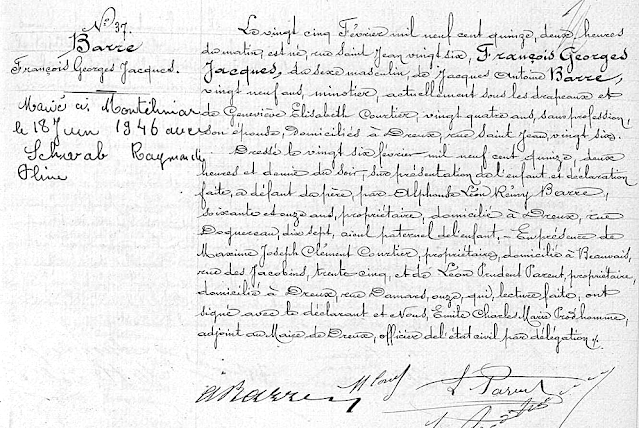 N° 37.
Barre
François Georges Jacques.
Marié à Montélimar
le 18 Juin 1946 avec
Schwab Raymonde
Aline
Le vingt cinq Février mil neuf cent quinze, deux heures
du matin, est né, rue Saint Jean vingt six, François Georges
Jacques, du sexe masculin, de Jacques Antoine Barre,
vingt neuf ans, minotier actuellement sous les drapeaux et
de Geneviève Elisabeth Courtier, vingt quatre ans, sans profession,
son épouse, domiciliés à Dreux, rue Saint Jean, vingt six.
Dressé le vingt six février mil neuf cent quinze, deux
heures et demie du soir, sur présentation de l'enfant et déclaration
faite, à défaut du père, par Alphonse Léon Rémy Barre,
soixante et onze ans, propriétaire, domicilié à Dreux, rue
Doguereau, dix sept, aïeul paternel de l'enfant. - En présence de
Maxime Joseph Clément Courtier, propriétaire, domicilié à Beauvais,
rue des Jacobins, trente cinq, et de Léon Prudent Parent, propriétaire,
domicilié à Dreux, rue Damars, onze, qui, lecture faite, ont
signé avec le déclarant et Nous, Emile Charles Marie Prod'homme,
adjoint au Maire de Dreux, officier de l'état civil par délégation.
A Barre
L Parent